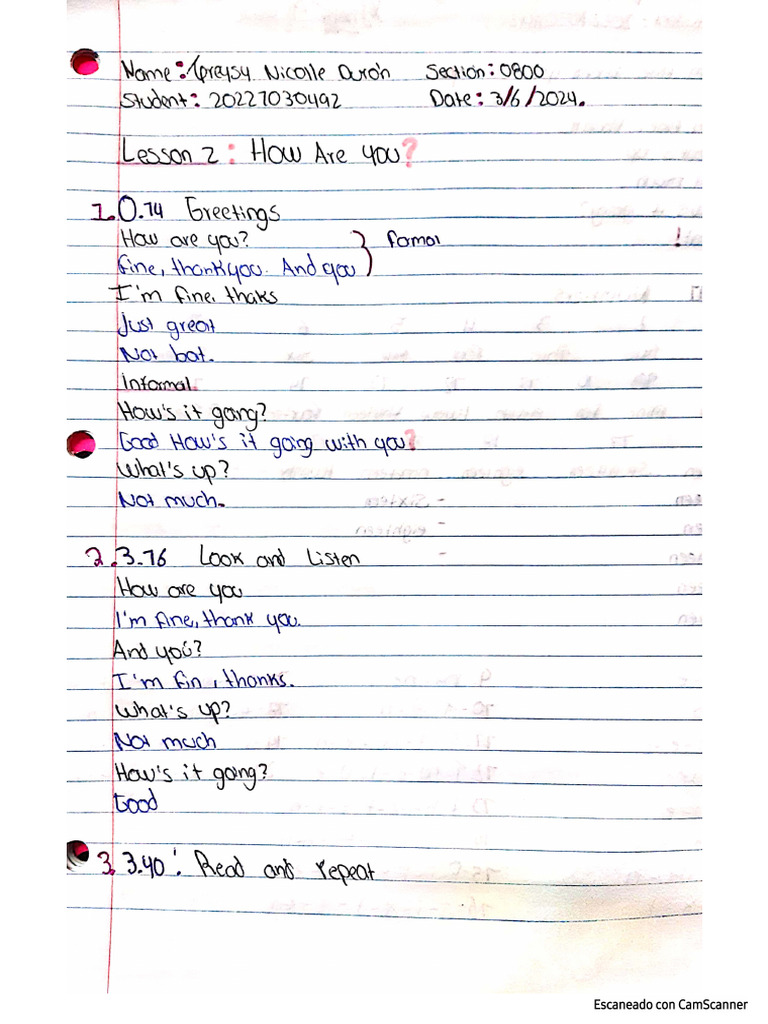 Name: Nicolle Section: 0800
Student: 20227030492 Date: 3/6/2024.
Lesson 2: How Are you?
1. 0.14 Greetings
How are you? } Formal
Fine, thank you. And you
I'm fine. thaks
Just great
Not bat.
Informal.
How's it going?
Good How's it going with you?
What's up?
Not much.
2. 3.16 Look and Listen
How are you
I'm fine, thank you.
And you?
I'm fin, thanks.
What's up?
Not much
How's it going?
Good
3. 3.40: Read and repeat
Escaneado con CamScanner